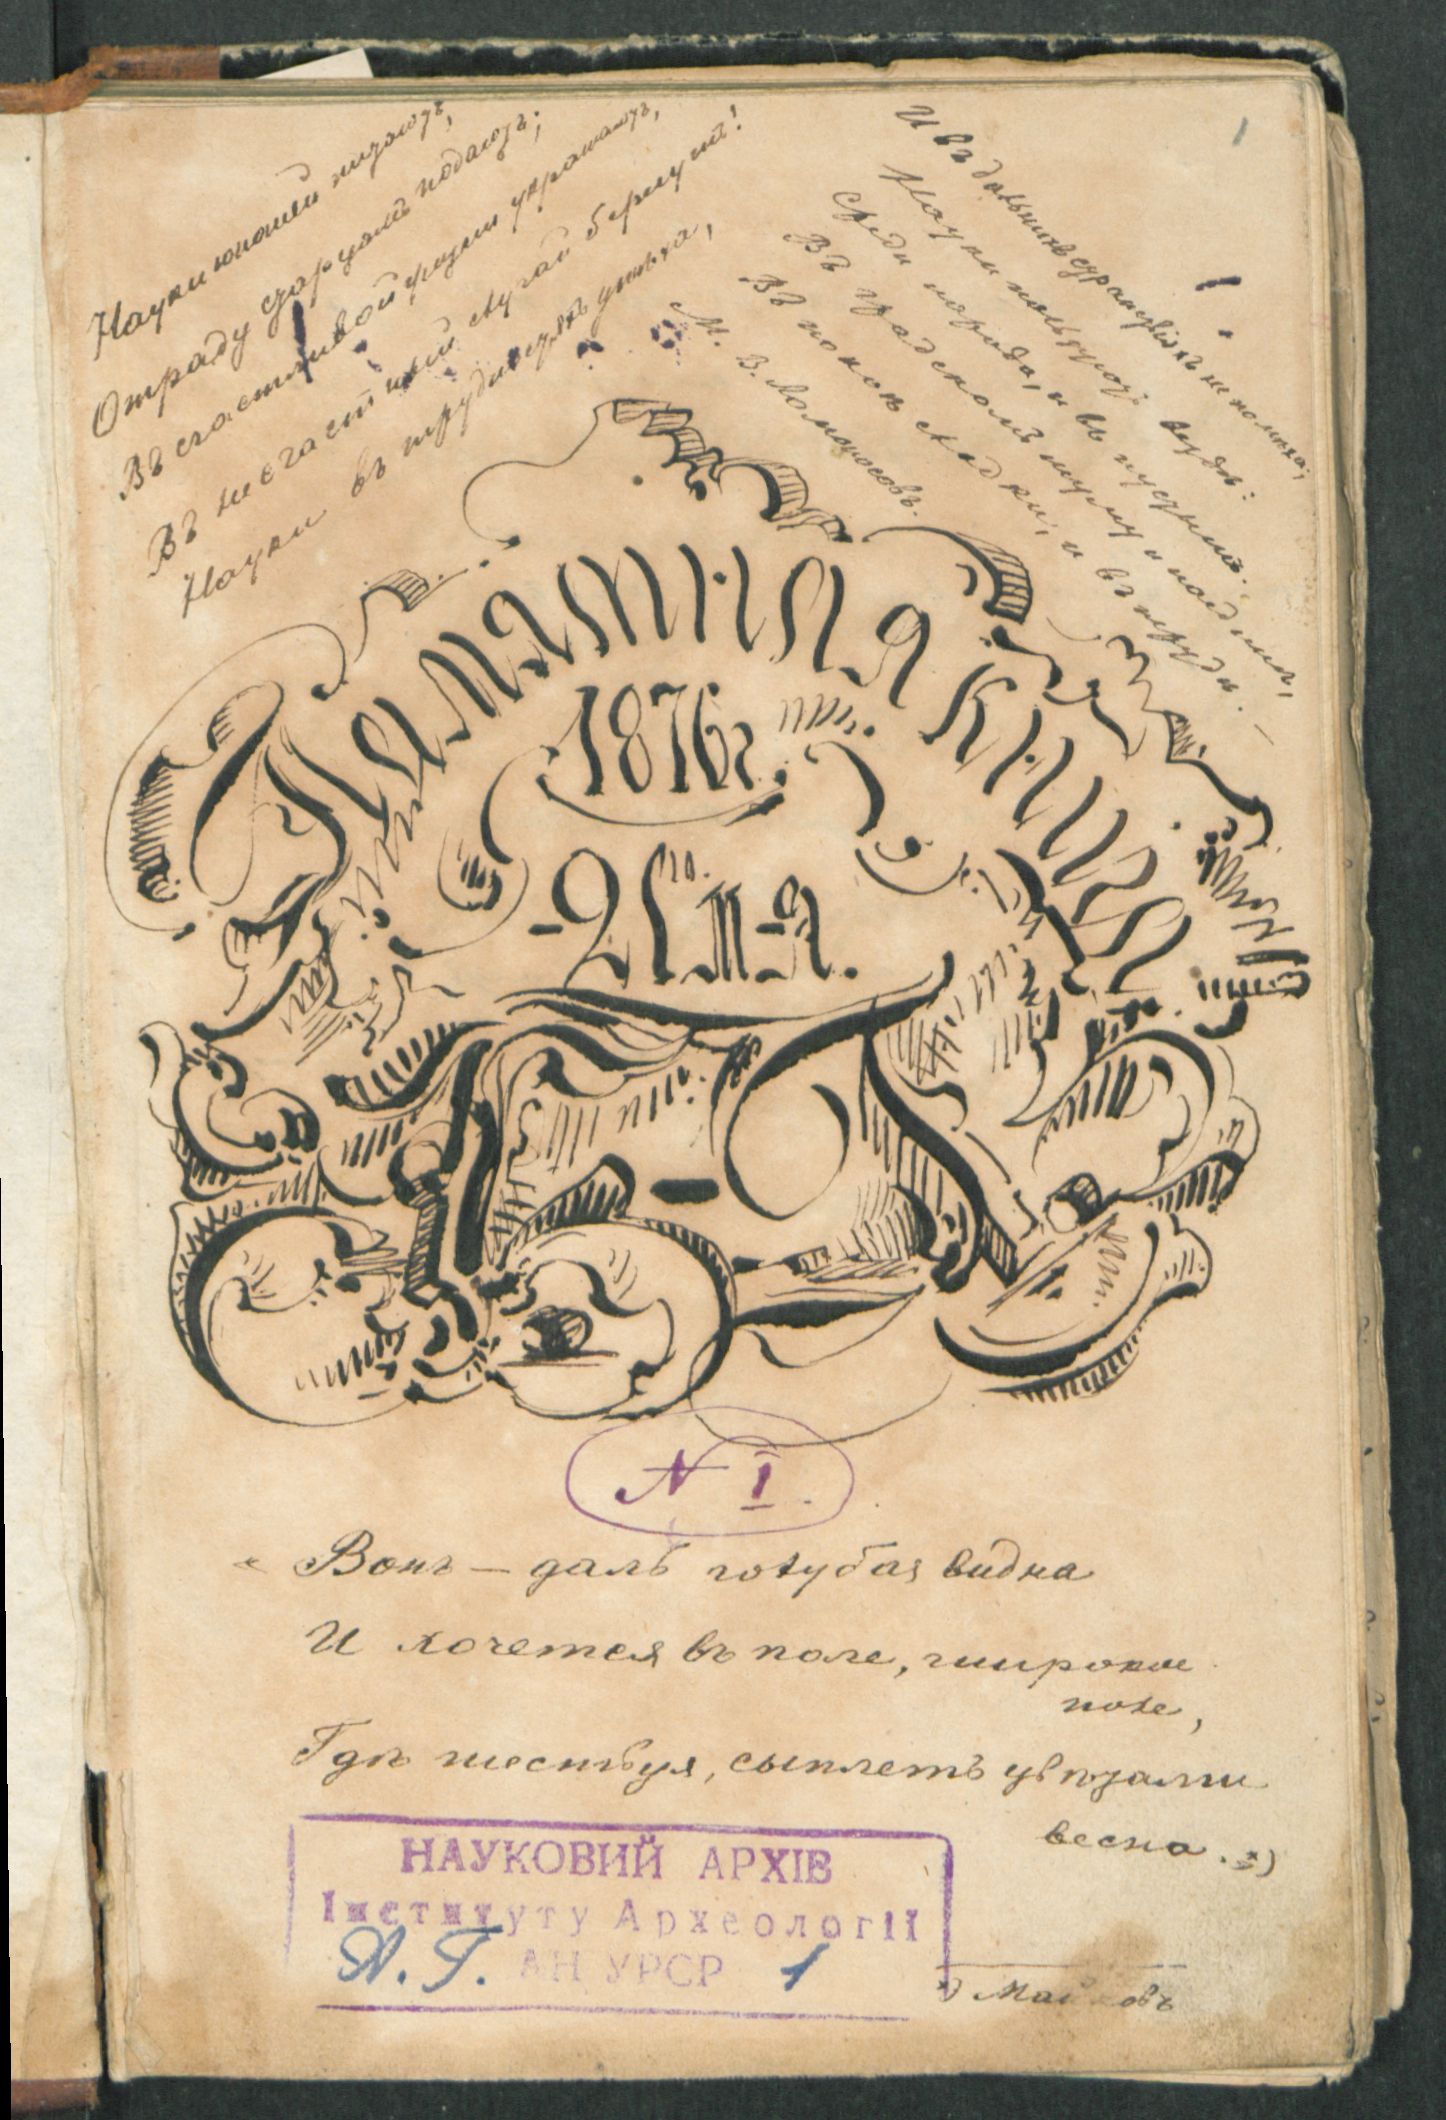 Науки юношей питаютъ,
Отраду старцамъ подаютъ;
Въ счастливой жизни украшаютъ,
Въ несчастный случай берегутъ!
Науки въ трудностяхъ утѣха,
И въ дальнихъ странствіяхъ не помѣха;
Науки пользуютъ вездѣ:
Среди народа, и въ пустынѣ.
Въ градскомъ шуму и наединѣ,
Въ покоѣ сладки, и въ трудѣ. —
М. В. Ломоносовъ.
1
Памятная книга
1876г.
-21го. м-я.
N I.
« Вонъ — даль голубая видна
И хочется въ поле, широкое
поле,
Гдѣ шествуя, сыплетъ цвѣтами
весна. *)
НАУКОВИЙ АРХІВ
Інституту Археології
А. Г. АН УРСР 1
*) Майковъ